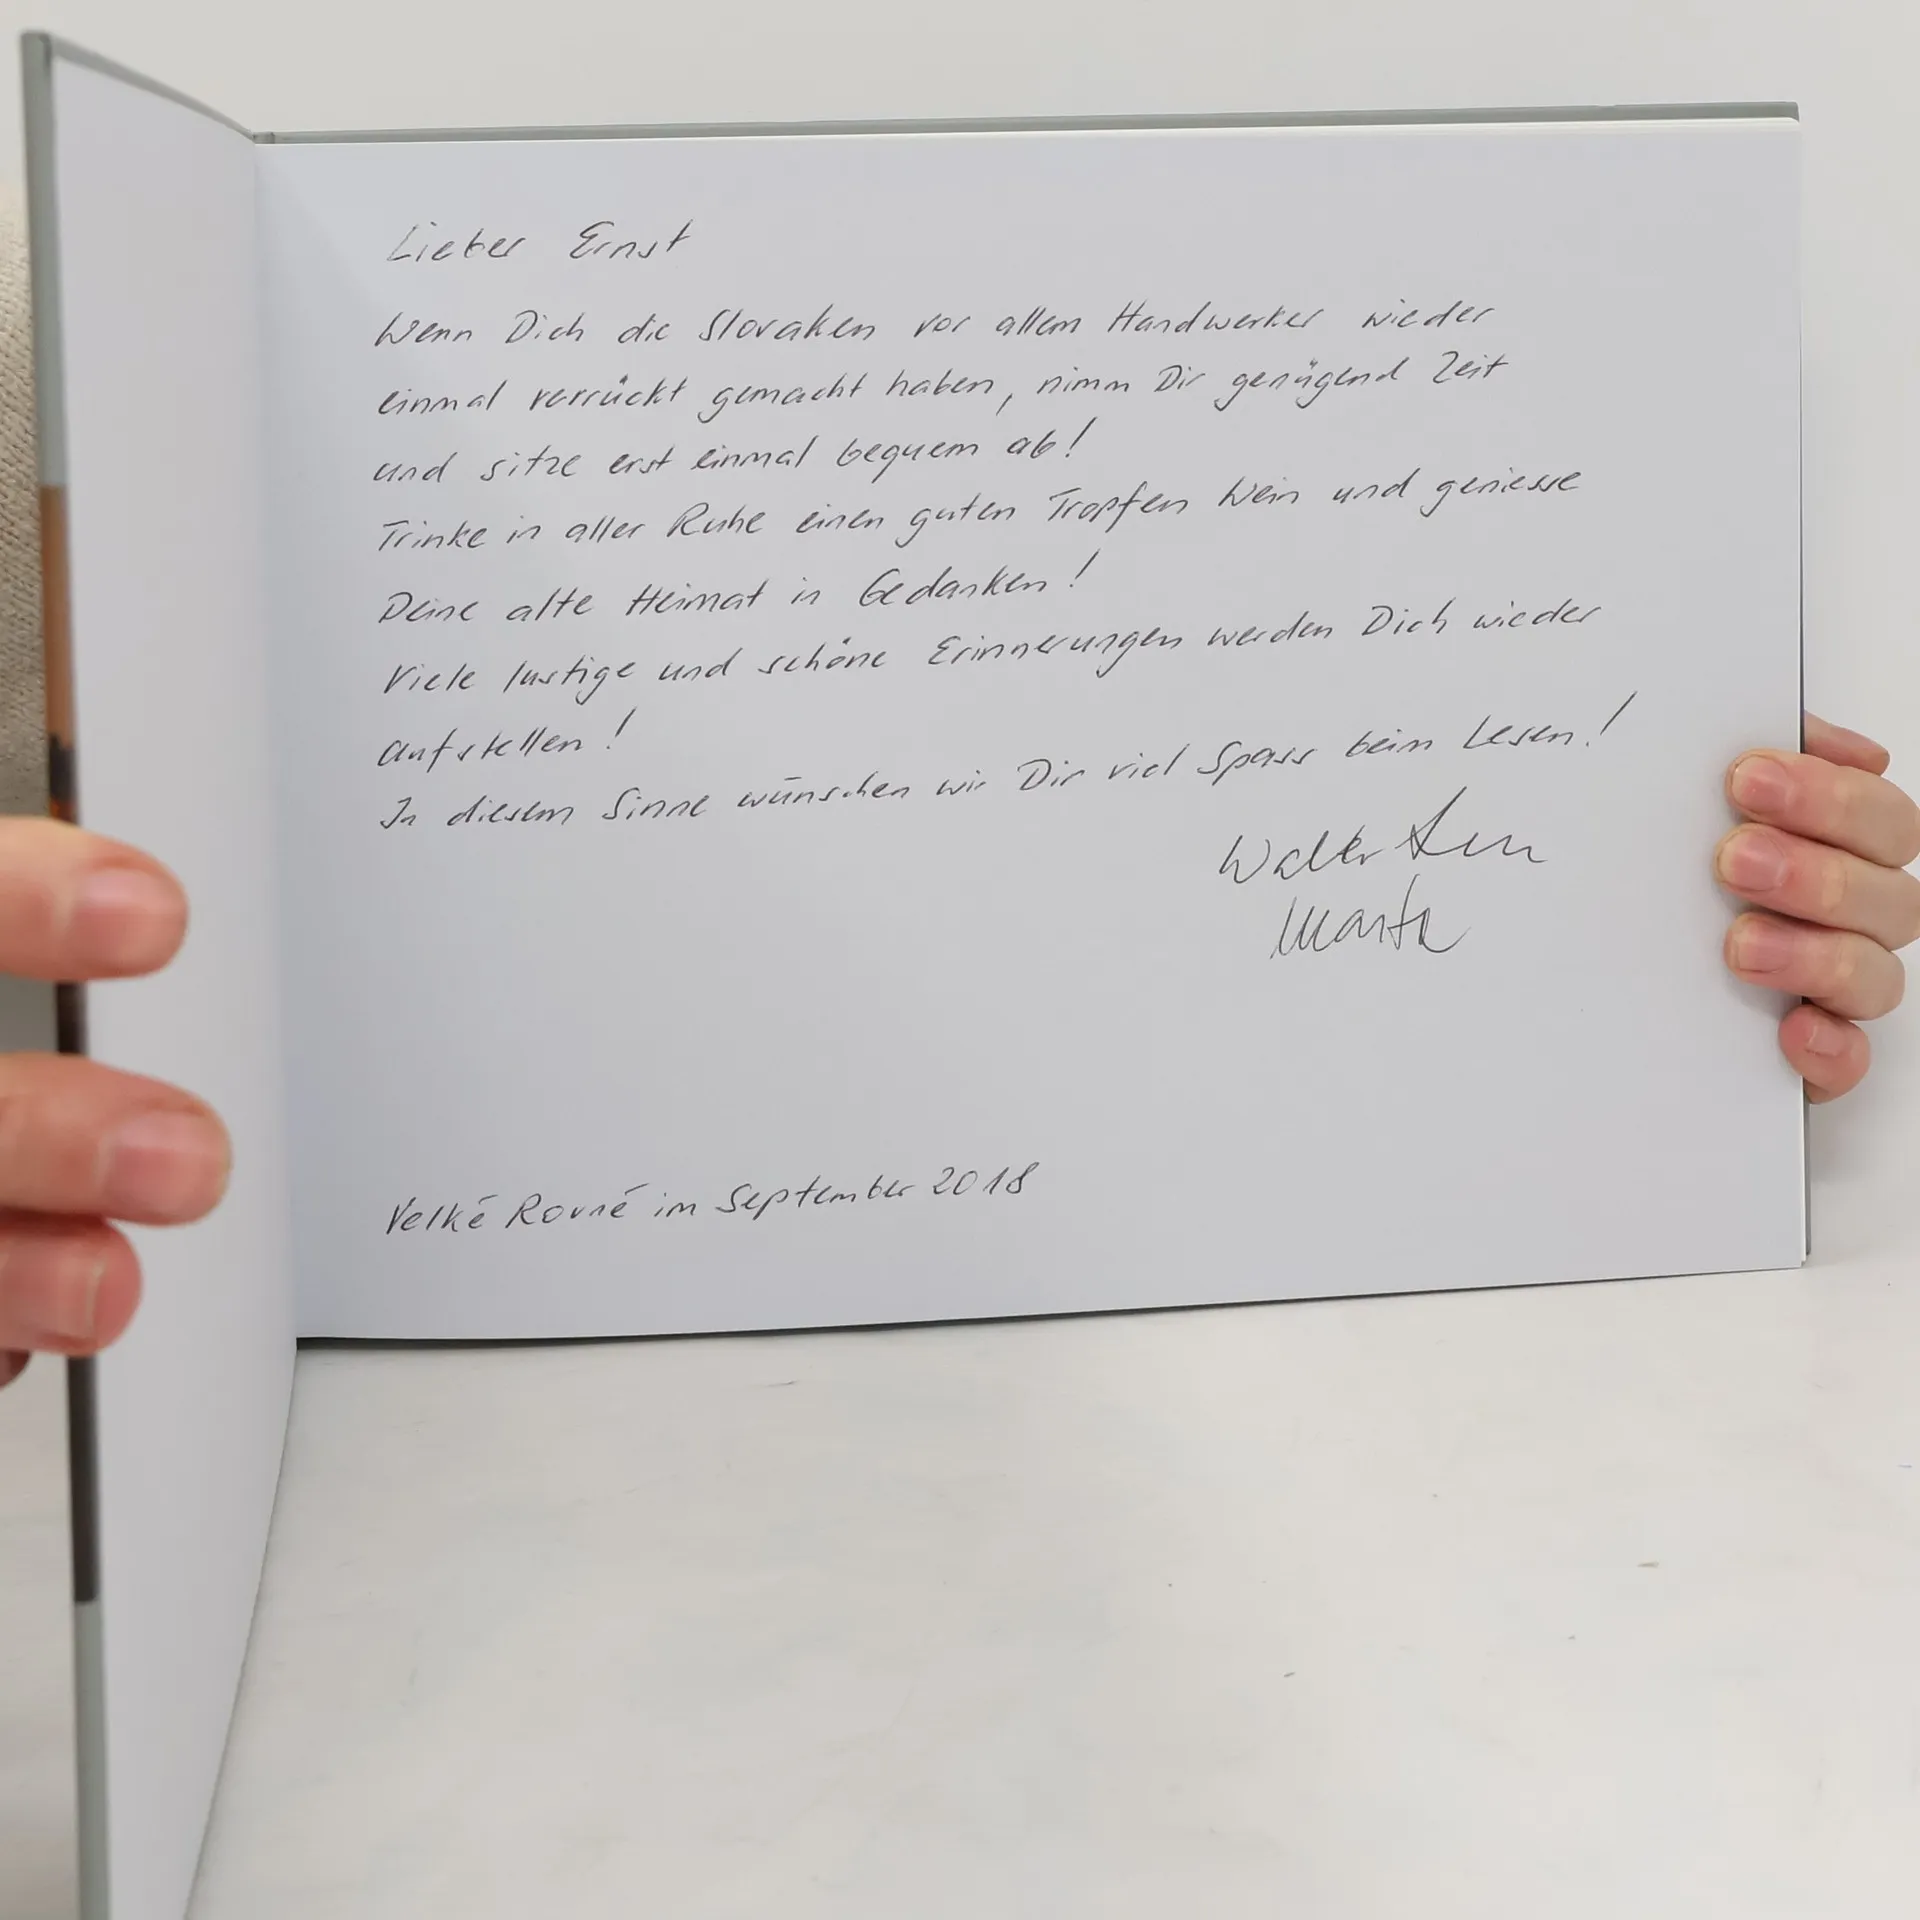 Lieber Ernst
Wenn Dich die Slovaken vor allem Handwerker wieder
einmal verrückt gemacht haben, nimm Dir genügend Zeit
und sitze erst einmal bequem ab!
Trinke in aller Ruhe einen guten Tropfen Wein und geniesse
Deine alte Heimat in Gedanken!
Viele lustige und schöne Erinnerungen werden Dich wieder
aufstellen!
In diesem Sinne wünschen wir Dir viel Spass beim Lesen!
Walter
Marta
Velké Rovné im September 2018